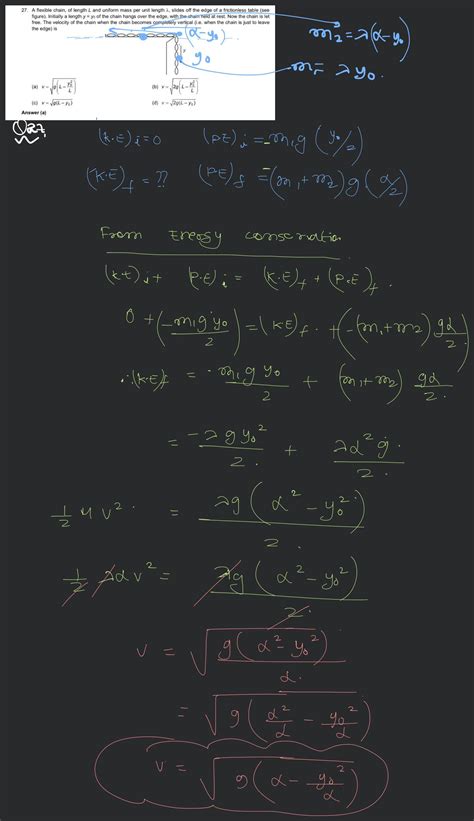 27. A flexible chain, of length L and uniform mass per unit length λ, slides off the edge of a frictionless table (see
figure). Initially a length y = y₀ of the chain hangs over the edge, with the chain held at rest. Now the chain is let
free. The velocity of the chain when the chain becomes completely vertical (i.e. when the chain is just to leave
the edge) is
(α-y₀)
m₂ = λ(α-y₀)
y
y₀
m₁ = λy₀
(a) v = √(g(L - y₀²/L))
(b) v = √(2g(L - y₀²/L))
(c) v = √(g(L-y₀))
(d) v = √(2g(L-y₀))
Answer (a)
Q27.
(K.E)i = 0 (PE)i = -m₁g (y₀/2)
(K.E)f = ?? (PE)f = -(m₁+m₂)g(α/2)
From Energy conservation
(K.E)i + (P.E)i = (K.E)f + (P.E)f.
0 + (-m₁gy₀/2) = (K.E)f. + (-(m₁+m₂) gα/2)
∴(K.E)f = -m₁gy₀/2 + (m₁+m₂) gα/2.
= -λgy₀²/2. + λα²g/2.
1/2 M v² = λg(α²-y₀²)/2.
1/2 λα v² = λg(α²-y₀²)/2.
v = √(g(α²-y₀²)/α.)
= √(g(α²/α - y₀²/α))
v = √(g(α - y₀²/α))